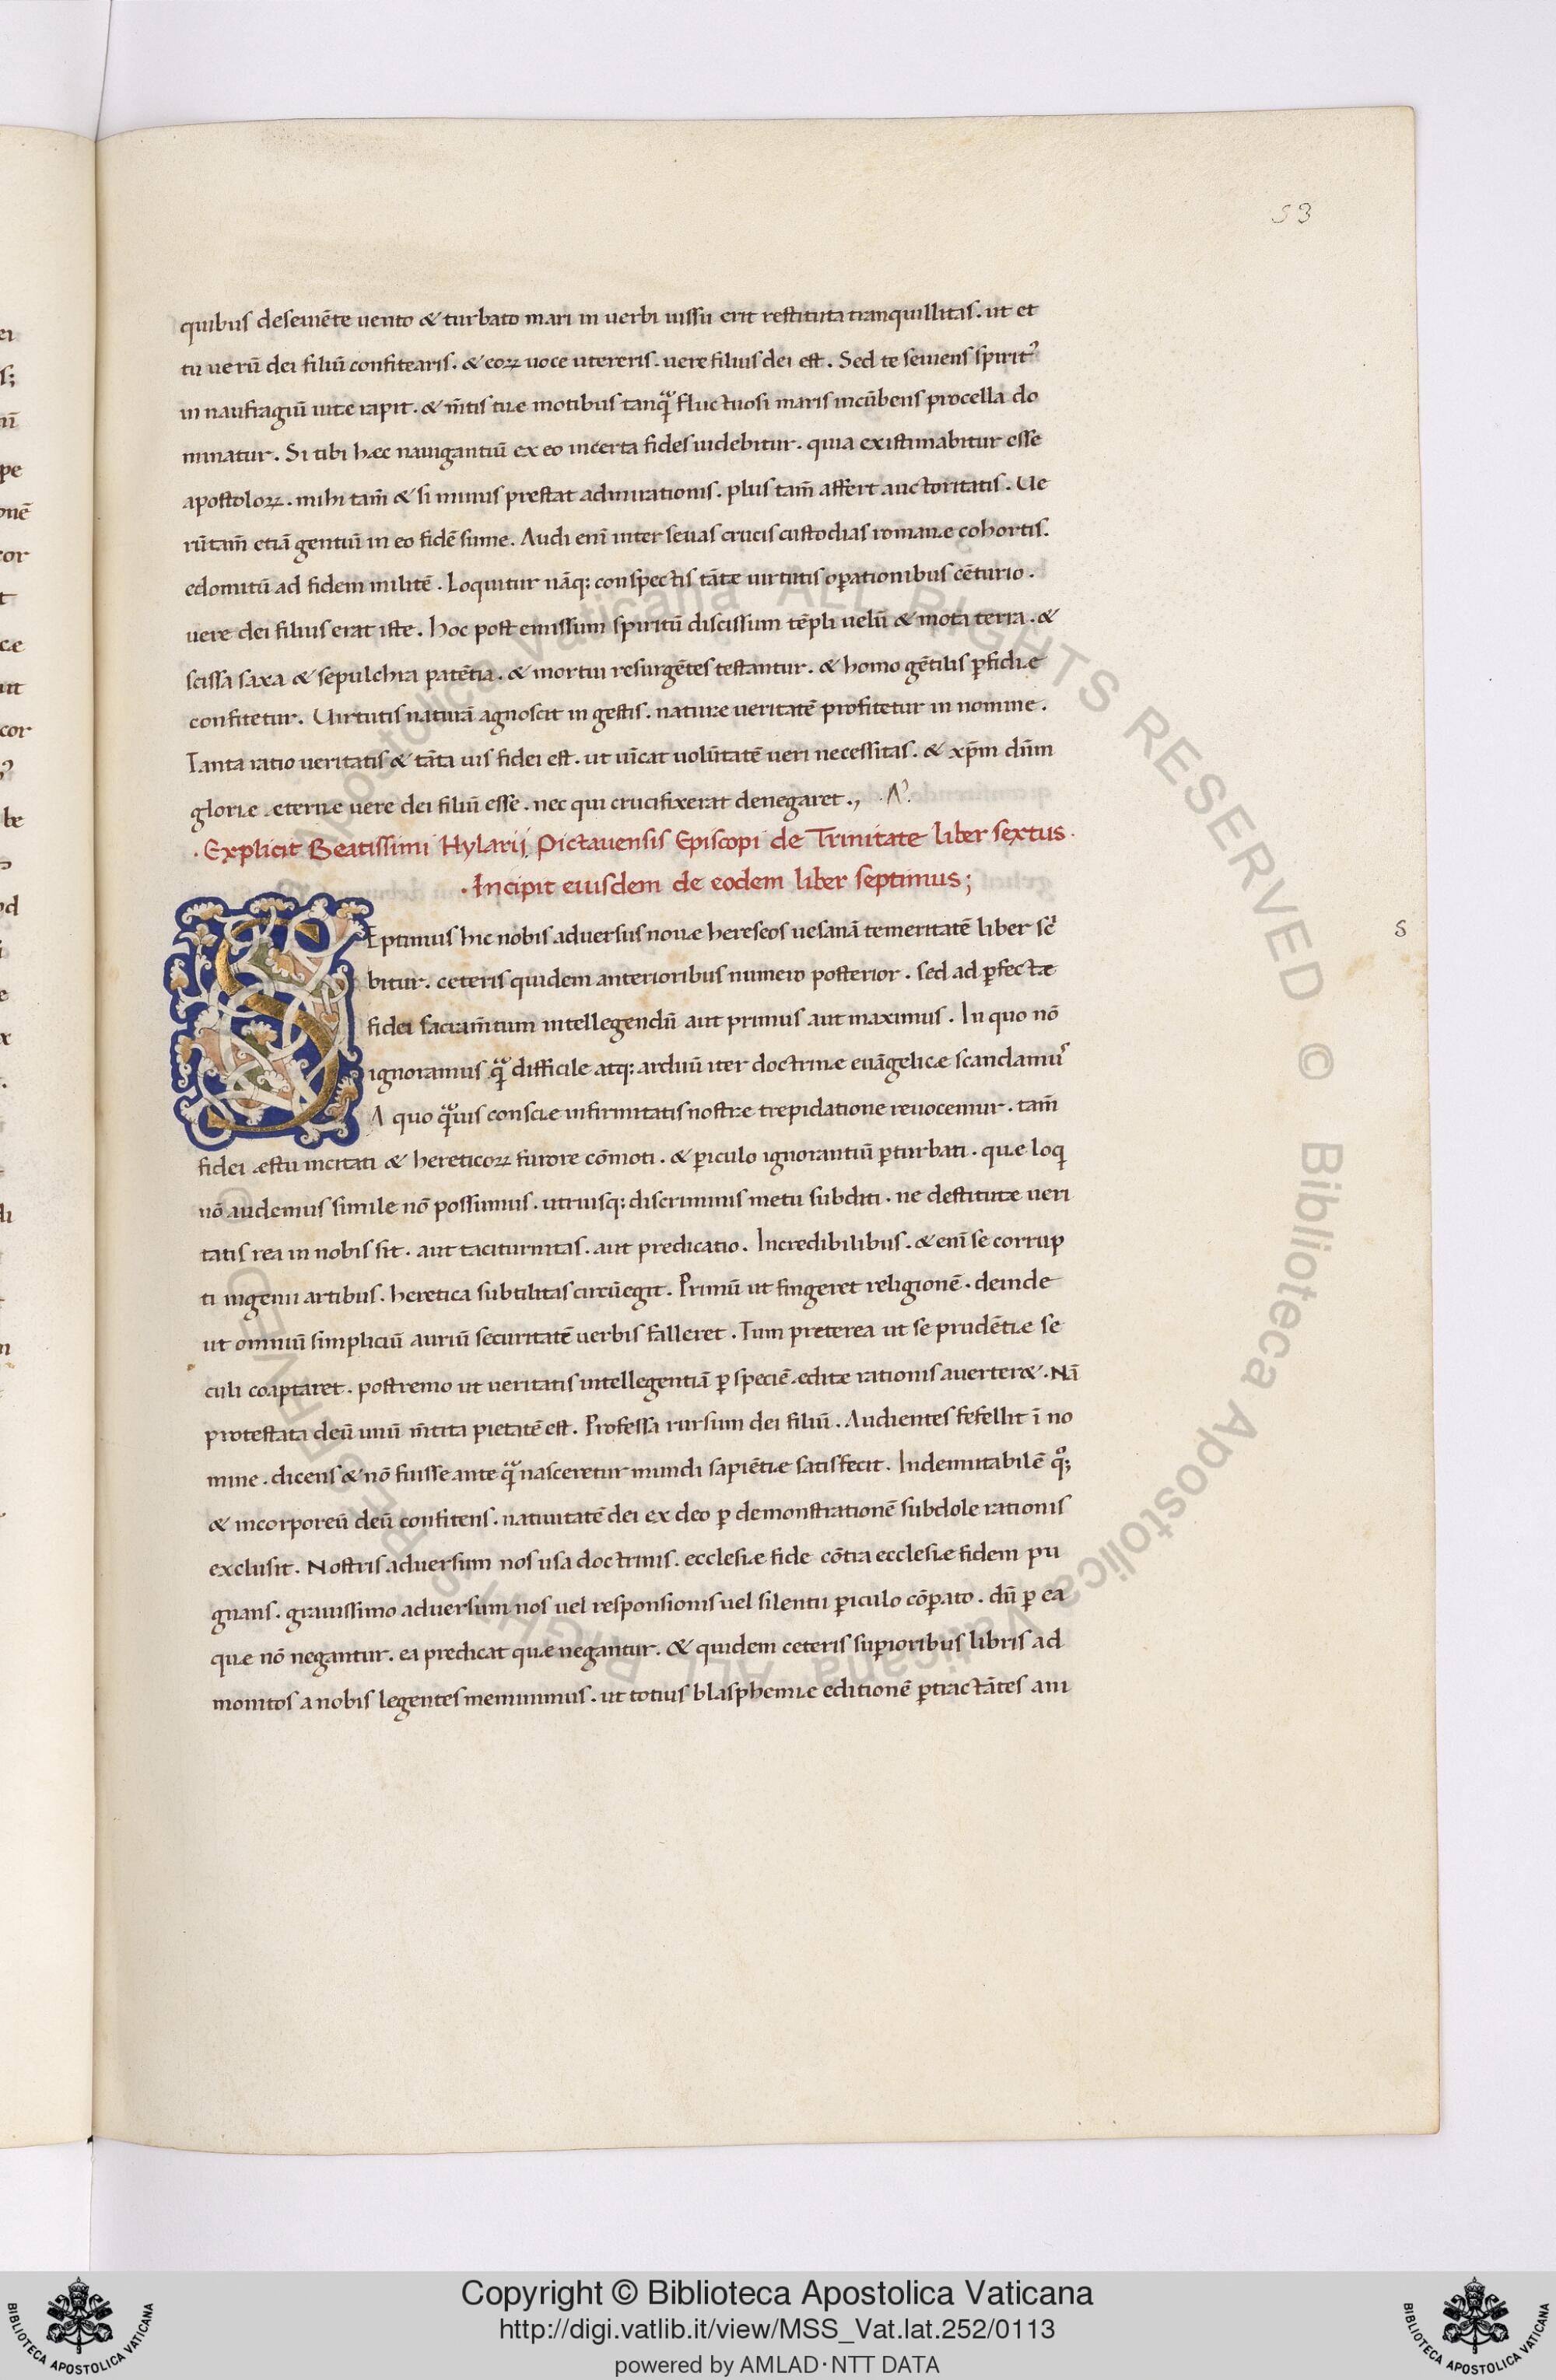 53
quibus deseuiẽte uento & turbato mari in uerbi uissu erit restituta tranquillitas. ut et
tu uerũ dei filiũ confitearis. & eoꝝ uoce utereris. uere filius dei est. Sed te seuiens spiritꝰ
in naufragiũ uite rapit. & m̃tis tuæ motibus tanqᷓ fluctuosi maris incũbens procella do
minatur. Si tibi hæc nauigantiũ ex eo incerta fides uidebitur. quia existimabitur esse
apostoloꝝ. mihi tam̃ & si minus prestat admirationis. plus tam̃ affert auctoritatis. Ue
rũtam̃ etiã gentiũ in eo fidẽ sume. Audi eni͂ inter seuas crucis custodias romanæ cohortis.
edomitũ ad fidem militẽ. Loquitur nãq; conspectis tãtæ uirtutis oꝑationibus cẽturio.
uere dei filius erat iste. hoc post emissum spiritũ discissum tẽpli uelũ & mota terra. &
scissa saxa & sepulchra patẽtia. & mortui resurgẽtes testantur. & homo gẽtilis ꝑfidiæ
confitetur. Uirtutis naturã agnoscit in gestis. naturæ ueritatẽ profitetur in nomine.
Tanta ratio ueritatis & tãta uis fidei est. ut uĩcat uolũtatẽ ueri necessitas. & xp̃m dñm
gloriæ æternæ uere dei filiũ esse. nec qui crucifixerat denegaret.,
. Explicit Beatissimi Hylarij Pictauensis Episcopi de Trinitate liber sextus.
. Incipit eiusdem de eodem liber septimus;
SEptimus hic nobis aduersus nouæ hereseos uesanã temeritatẽ liber scͥ
bitur. ceteris quidem anterioribus numero posterior. sed ad ꝑfectæ
fidei sacram̃tum intellegendũ aut primus aut maximus. In quo nõ
ignoramus qᷓ difficile atq; arduũ iter doctrinæ euãgelicæ scandamuˢ
A quo qᷓuis consciæ infirmitatis nostræ trepidatione reuocemur. tam̃
fidei æstu incitati & hereticoꝝ furore cõmoti. & ꝑiculo ignorantiũ ꝑturbati. quæ loq
nõ audemus simile nõ possumus. utriusq; discriminis metu subditi. ne destitutæ ueri
tatis rea in nobis sit. aut taciturnitas. aut predicatio. Incredibilibus. & eni͂ se corrup
ti ingenii artibus. heretica subtilitas circũegit. Primũ ut fingeret religionẽ. deinde
ut omniũ simpliciũ auriũ securitatẽ uerbis falleret. Tum preterea ut se prudẽtiæ se
culi coaptaret. postremo ut ueritatis intellegentiã ꝑ speciẽ æditæ rationis auerter&. Nã
protestata deũ unũ m̃tita pietatẽ est. Professa rursum dei filiũ. Audientes fefellit ĩ no
mine. dicens & nõ fuisse ante qᷓ nasceretur mundi sapiẽtiæ satisfecit. Indemutabilẽ qͦ;
& incorporeũ deũ confitens. natiuitatẽ dei ex deo ꝑ demonstrationẽ subdole rationis
exclusit. Nostris aduersum nos usa doctrinis. ecclesiæ fide cõtra ecclesiæ fidem pu
gnans. grauissimo aduersum nos uel responsionis uel silentii ꝑiculo cõꝑato. dũ ꝑ ea
quæ nõ negantur. ea predicat quæ negantur. & quidem ceteris suꝑioribus libris ad
monitos a nobis legentes meminimus. ut totius blasphemiæ editionẽ ꝑtractãtes ani
s
Copyright © Biblioteca Apostolica Vaticana
http://digi.vatlib.it/view/MSS_Vat.lat.252/0113
powered by AMLAD·NTT DATA
BIBLIOTECA APOSTOLICA VATICANA
BIBLIOTECA APOSTOLICA VATICANA
© Biblioteca Apostolica Vaticana ALL RIGHTS RESERVED © Biblioteca Apostolica Vaticana ALL RIGHTS RESERVED